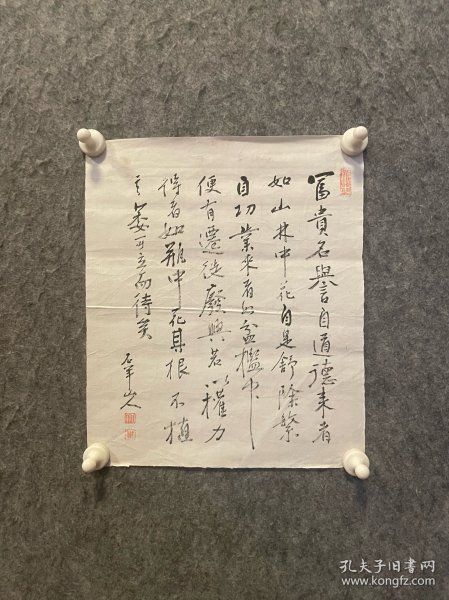 冨貴名譽自道德来者
如山林中花自是舒除繁
自功業来者如盆檻中
便有遷徙廢興若以權力
得者如瓶中花其根不植
其萎可立而待矣
孔夫子旧书网
www.kongfz.com